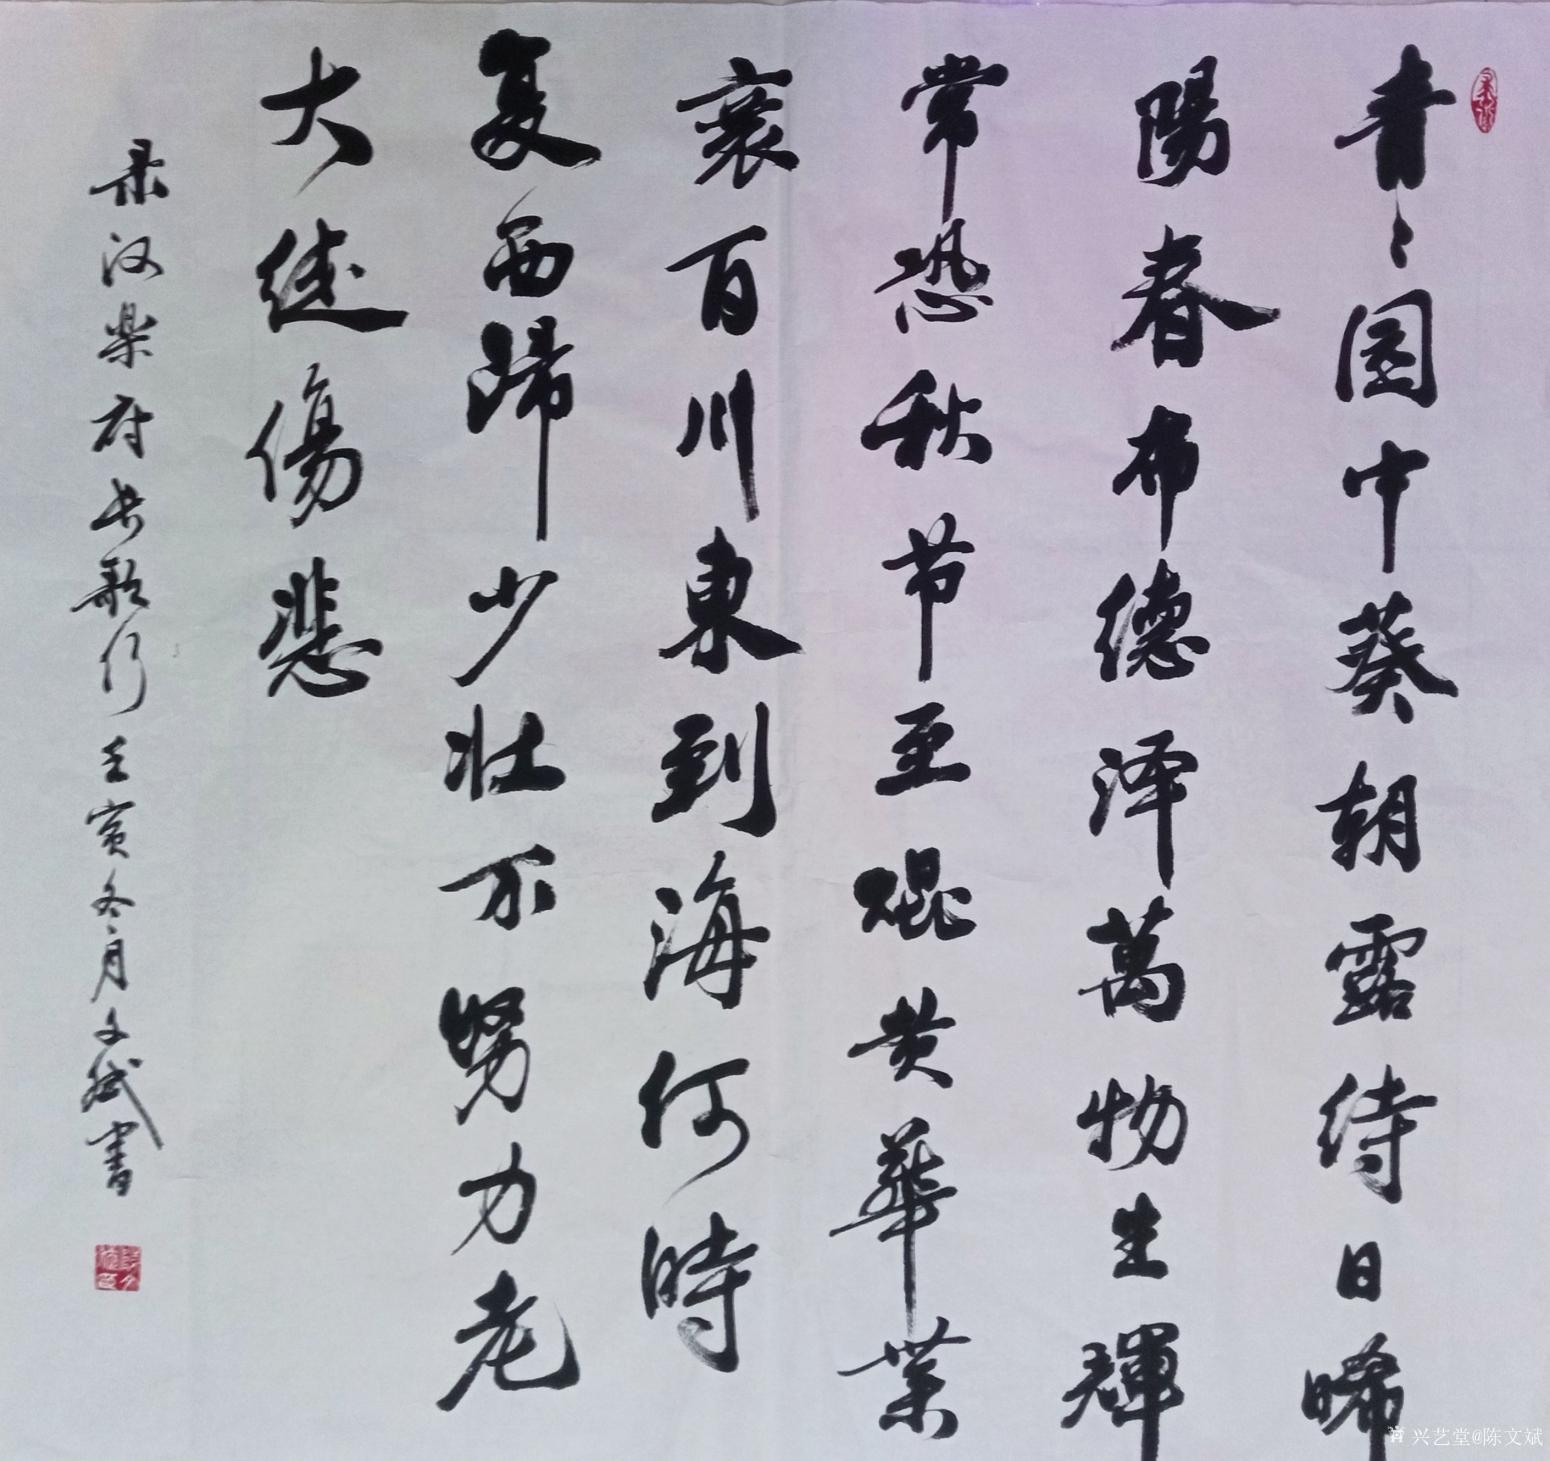 青〻园中葵朝露待日晞
陽春布德泽萬物生輝
常恐秋节至焜黄華葉
衰百川東到海何時
复西歸少壮不努力老
大徒傷悲
录汉樂府长歌行壬寅冬月文斌書
兴艺堂@陈文斌